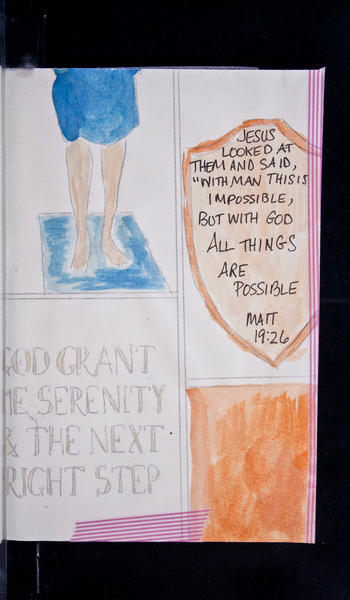 JESUS
LOOKED AT
THEM AND SAID,
"WITH MAN THIS IS
IMPOSSIBLE,
BUT WITH GOD
ALL THINGS
ARE
POSSIBLE
MATT
19:26
GOD GRANT
ME SERENITY
& THE NEXT
RIGHT STEP